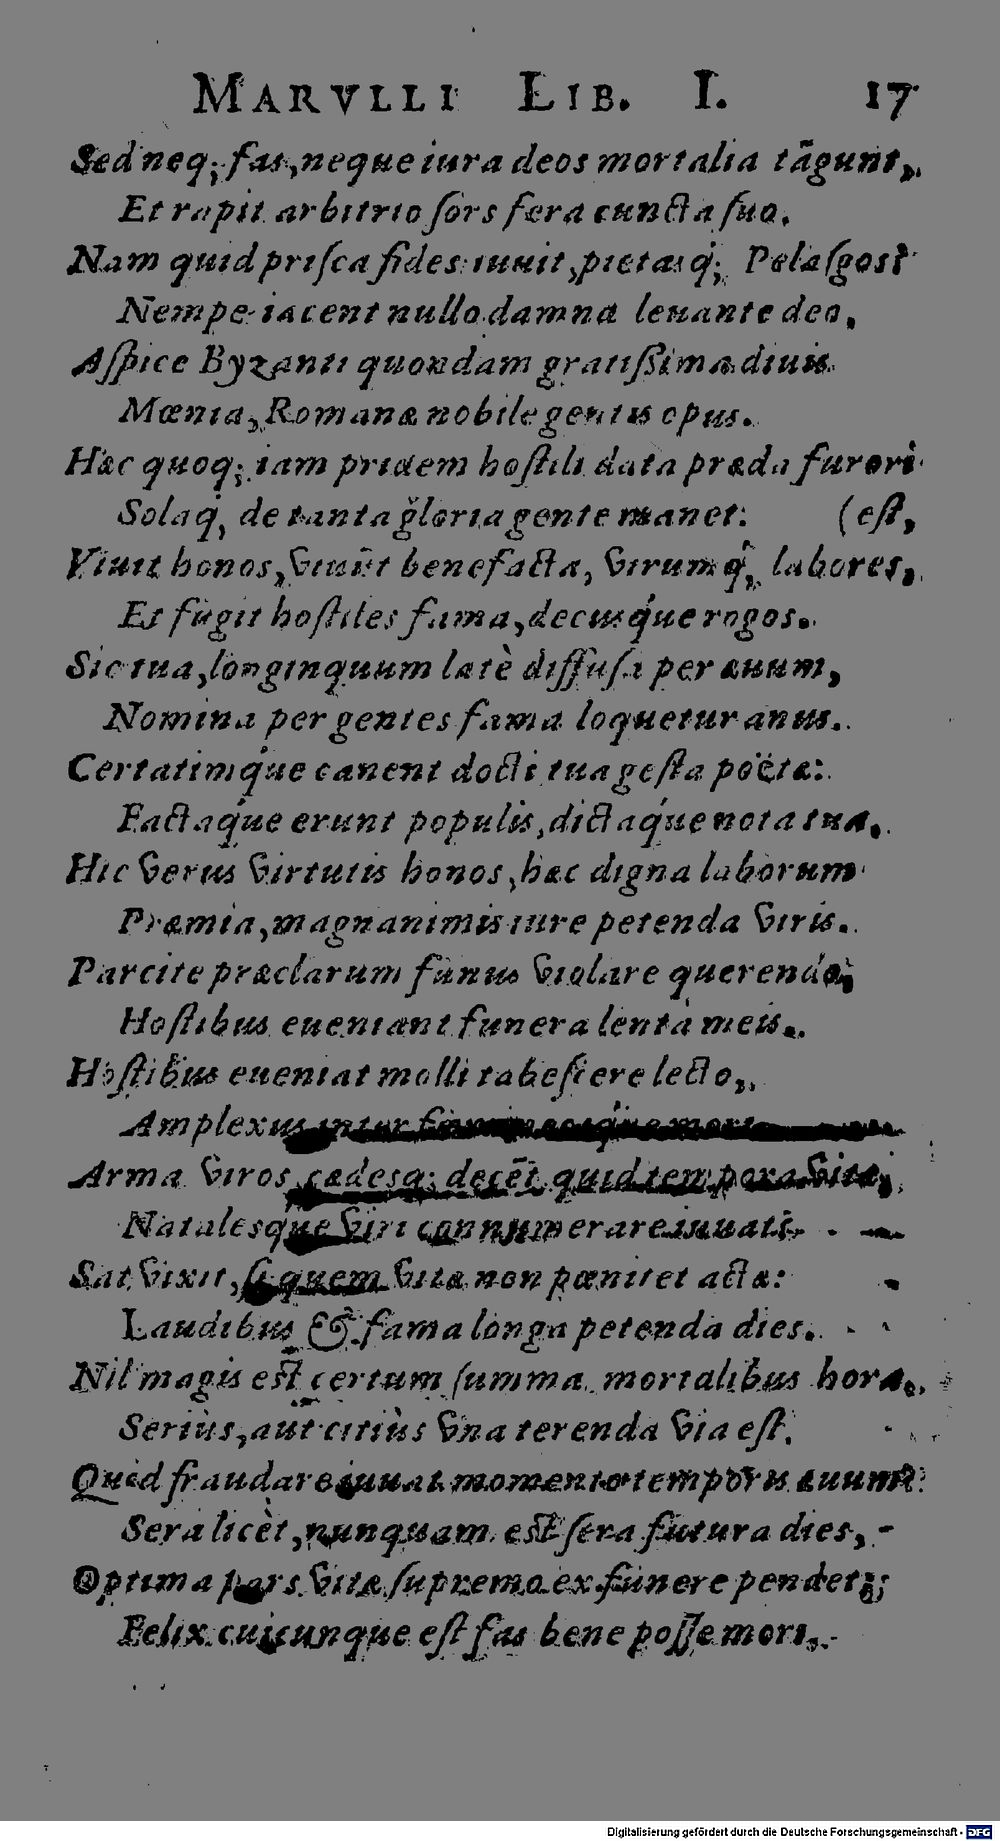 MARVLLI LIB. I. 17
Sed neq; fas, neque iura deos mortalia tãgunt,
Et rapit arbitrio ſors fera cuncta ſuo.
Nam quid priſca fides iuuit, pietasq́; Pelaſgos?
Nempe iacent nullo damna leuante deo,
Aſpice Byzanti quondam gratiſſima diuis
Mœnia, Romanæ nobile gentis opus.
Hæc quoq; iam pridem hoſtili data præda furori
Solaq́, de tanta gloria gente manet: (eſt,
Viuit honos, viuũt benefacta, virumq́, labores,
Et fugit hoſtiles fama, decusq́ue rogos.
Sic tua, longinquum latè diffuſa per æuum,
Nomina per gentes fama loquetur anus.
Certatimq́ue canent docti tua geſta poëtæ:
Factaq́ue erunt populis, dictaq́ue nota tua.
Hic verus virtutis honos, hæc digna laborum
Præmia, magnanimis iure petenda viris.
Parcite præclarum funus violare querendo;
Hoſtibus eueniant funera lenta meis.
Hoſtibus eueniat molli tabeſcere lecto,
Amplexus inter fœmineosq́ue mori
Arma viros, cædesq; decẽt, quid tempora vitæ,
Natalesque viri connumerare iuuat?
Sat vixit, ſi quem vitæ non pœnitet actæ:
Laudibus & fama longa petenda dies.
Nil magis eſt certum ſumma mortalibus hora.
Seriùs, aut citiùs vna terenda via eſt.
Quid fraudare iuuat momento temporis æuum?
Sera licèt, nunquam eſt ſera futura dies,
Optima pars vitæ ſupremo ex funere pendet;
Felix cuicunque eſt fas bene poſſe mori.
Digitalisierung gefördert durch die Deutsche Forschungsgemeinschaft - DFG